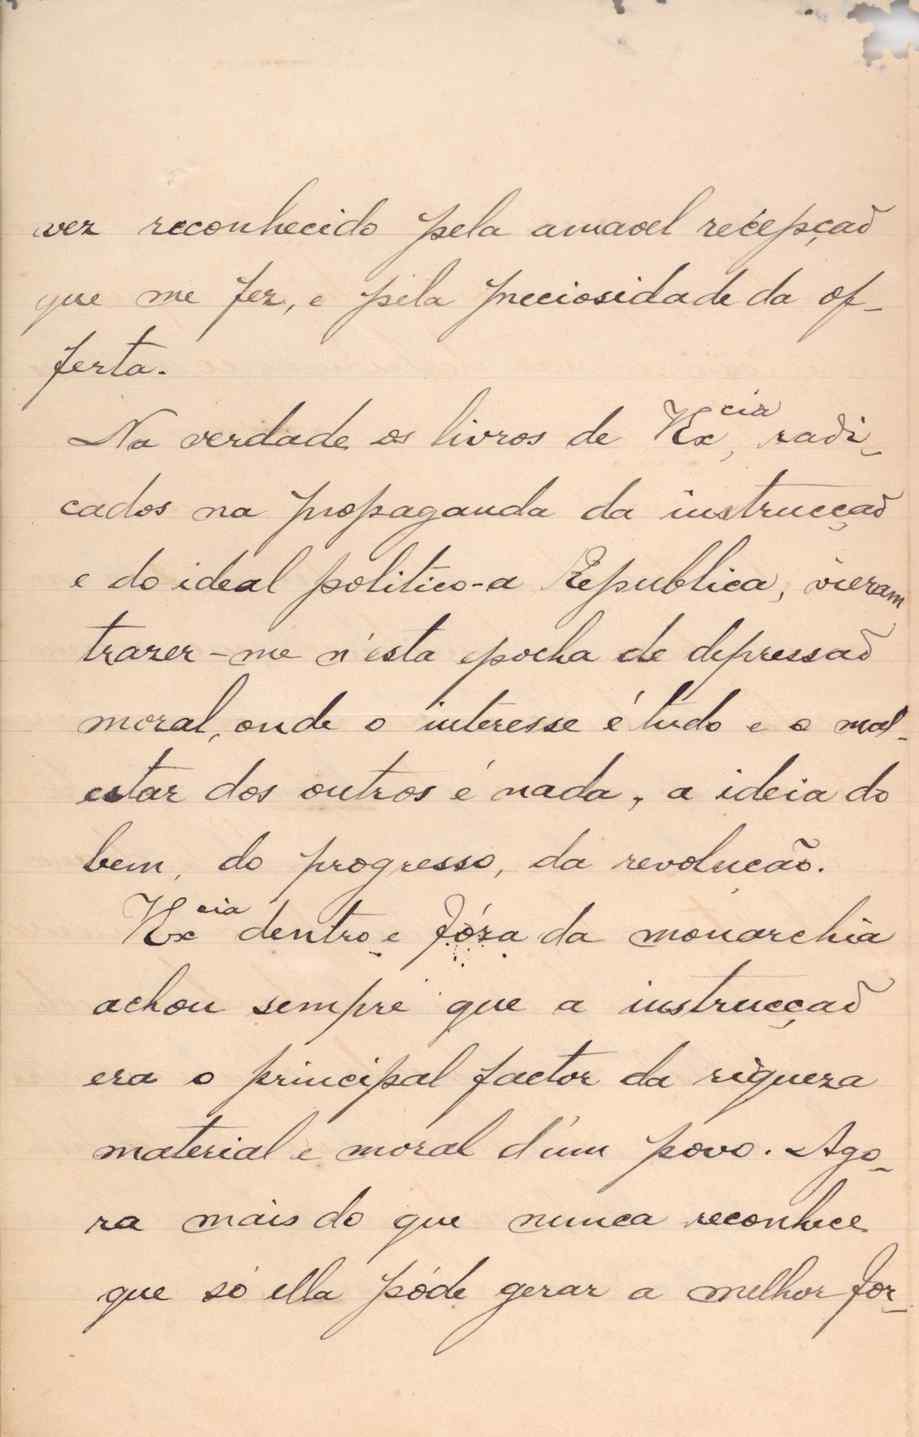 vez reconhecido pela amavel recepção
que me fez, e pela preciosidade da of-
ferta.
Na verdade os livros de V Ex.cia, radi-
cados na propaganda da instrucção
e do ideal politico-a Republica, vieram
trazer-me n'esta epocha de depressão
moral, onde o interesse é tudo e o mal-
estar dos outros é nada, a ideia do
bem, do progresso, da revolução.
V Ex.cia dentro e fóra da monarchia
achou sempre que a instrucção
era o principal factor da riqueza
material e moral d'um povo. Ago-
ra mais do que nunca reconhece
que só ella póde gerar a melhor for-